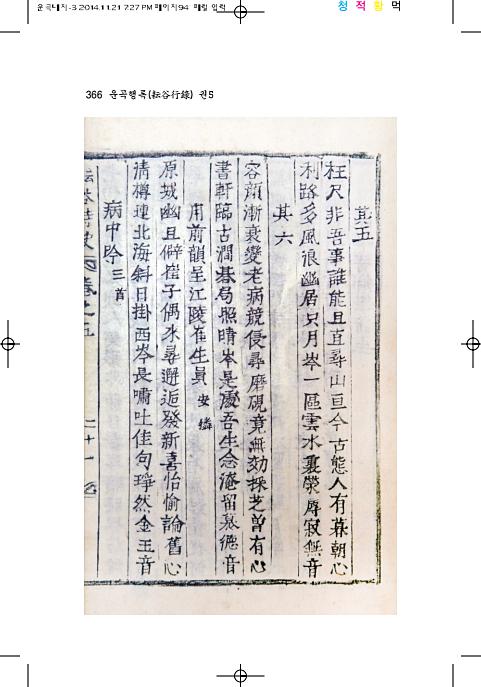 운곡내지-3 2014.11.21 7:27 PM 페이지94 매월 입력
청 적 황 먹
366 운곡행록(耘谷行錄) 권5
其五
枉尺非吾事誰能且直尋山亘今古態人有暮朝心
利路多風浪幽居只月岑一區雲水裏榮辱寂無音
其六
容顔漸衰變老病競侵尋磨硯竟無効採芝曽有心
書軒臨古澗碁局照晴岑是處吾生念淹留慕德音
用前韻呈江陵崔生員 安璘
原城幽且僻崔子偶來尋邂逅發新喜怡愉論舊心
淸樽連北海斜日掛西岑長嘯吐佳句琤然金玉音
病中吟 三首
耘谷詩史 卷之五 二十一